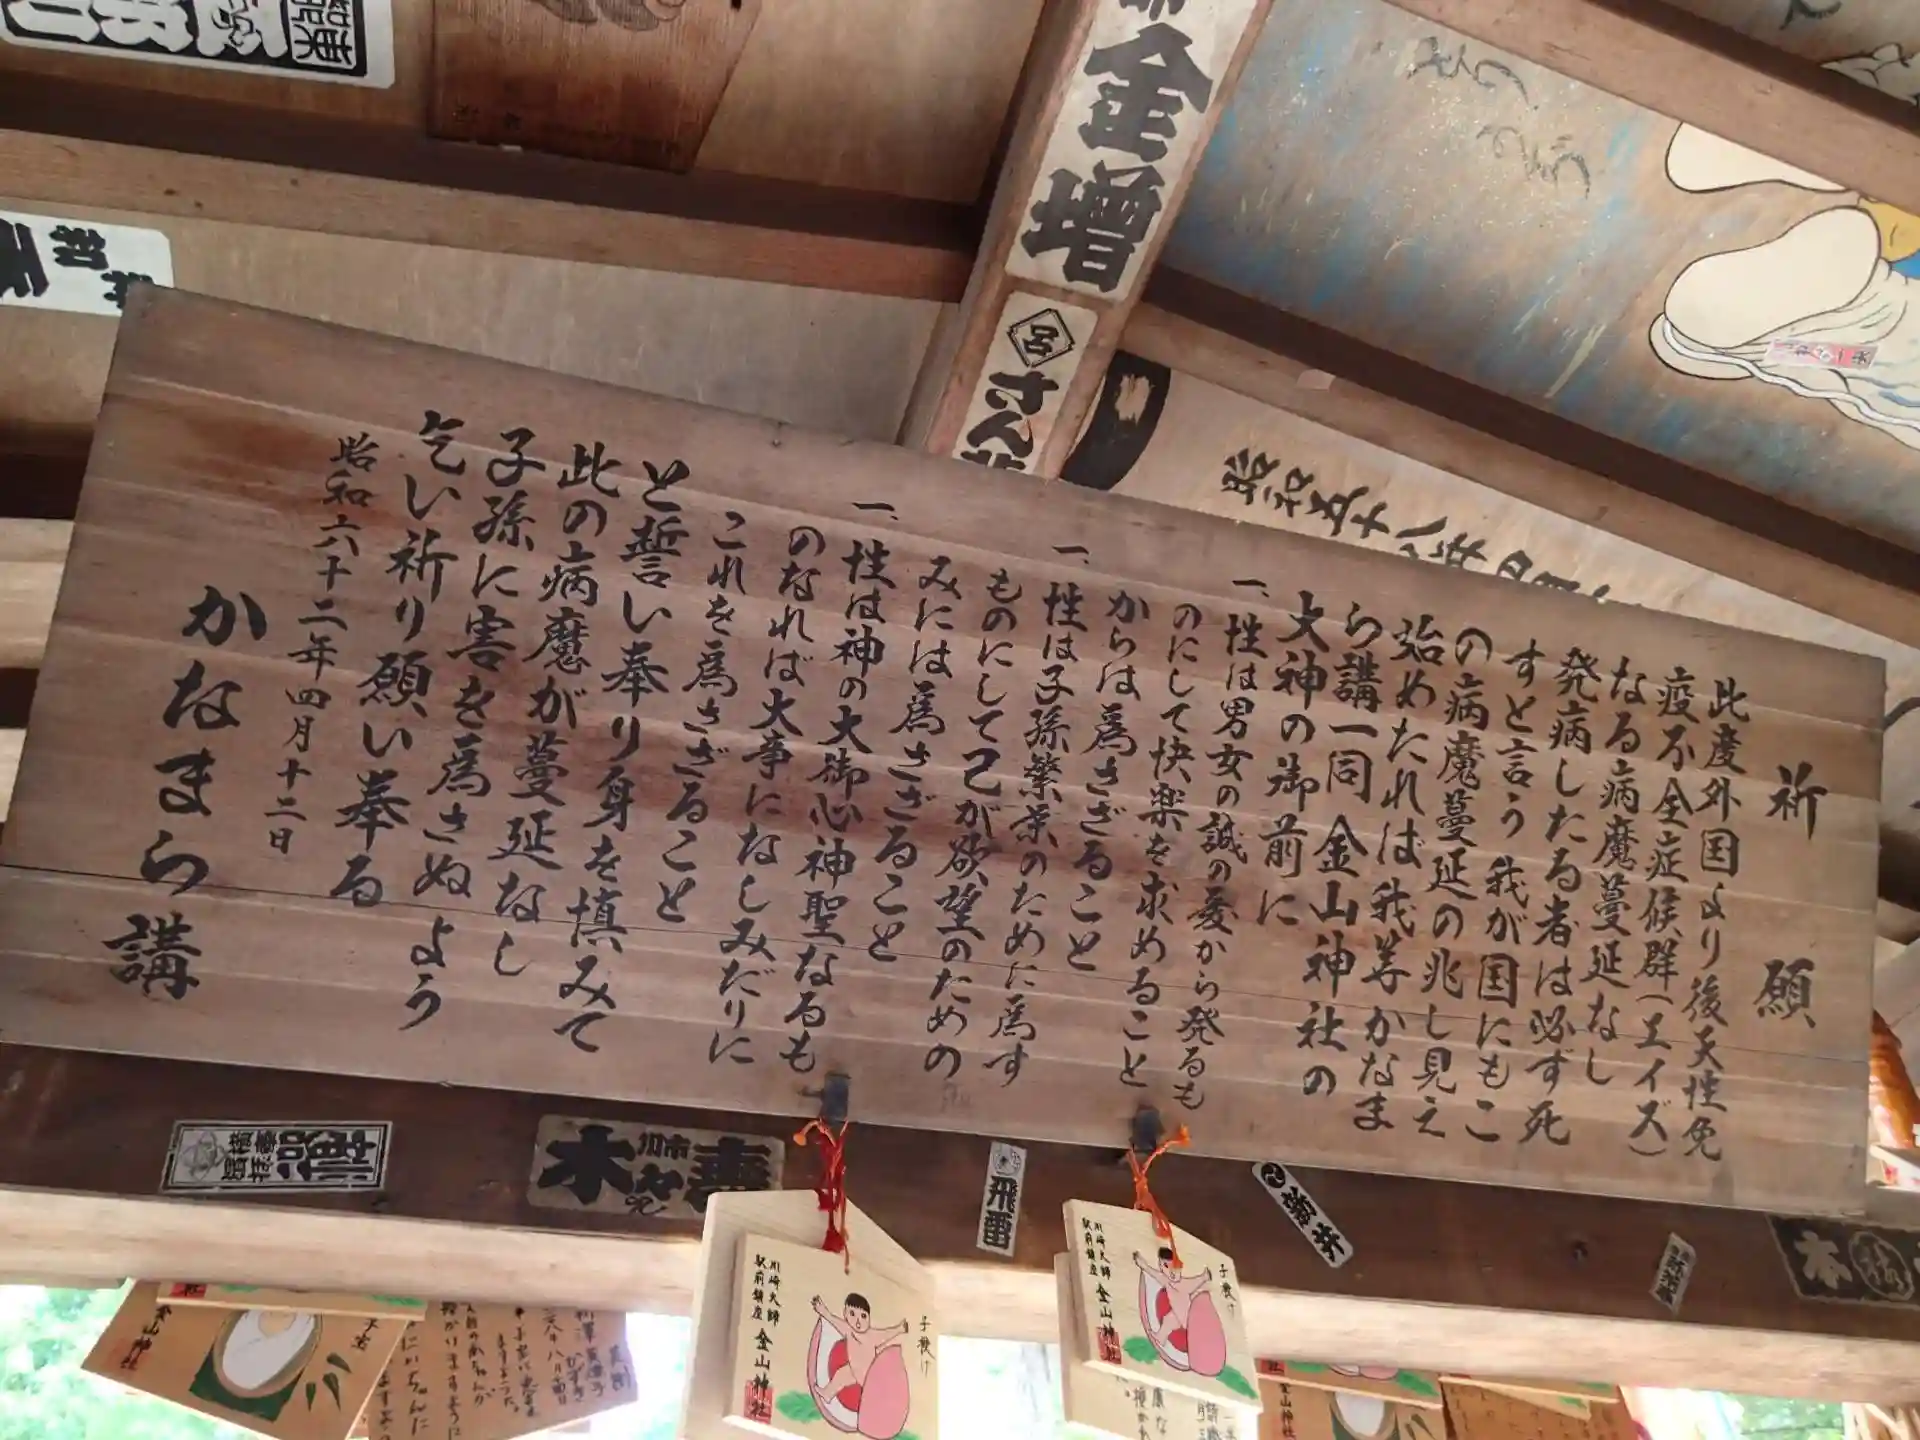 祈願
此度外国より後天性免
疫不全症候群(エイズ)
なる病魔蔓延なし
発病したる者は必ず死
すと言う我が国にもこ
の病魔蔓延の兆し見え
始めたれば我等かなま
ら講一同金山神社の
大神の御前に
一、性は男女の誠の愛から発るも
のにして快楽を求めること
からは為さざること
一、性は子孫繁栄のために為す
ものにして己が欲望のための
みには為さざること
一、性は神の大御心神聖なるも
のなれば大事になしみだりに
これを為さざること
と誓い奉り身を慎みて
此の病魔が蔓延なし
子孫に害を為さぬよう
乞い祈り願い奉る
昭和六十二年四月十二日
かなまら講
金増
呂
さん
昭和五十八年四月
木
寿
飛
川崎大師
駅前鎮座
金山神社
子授け
川崎大師
駅前鎮座
金山神社
子授け
金山神社
金山神社